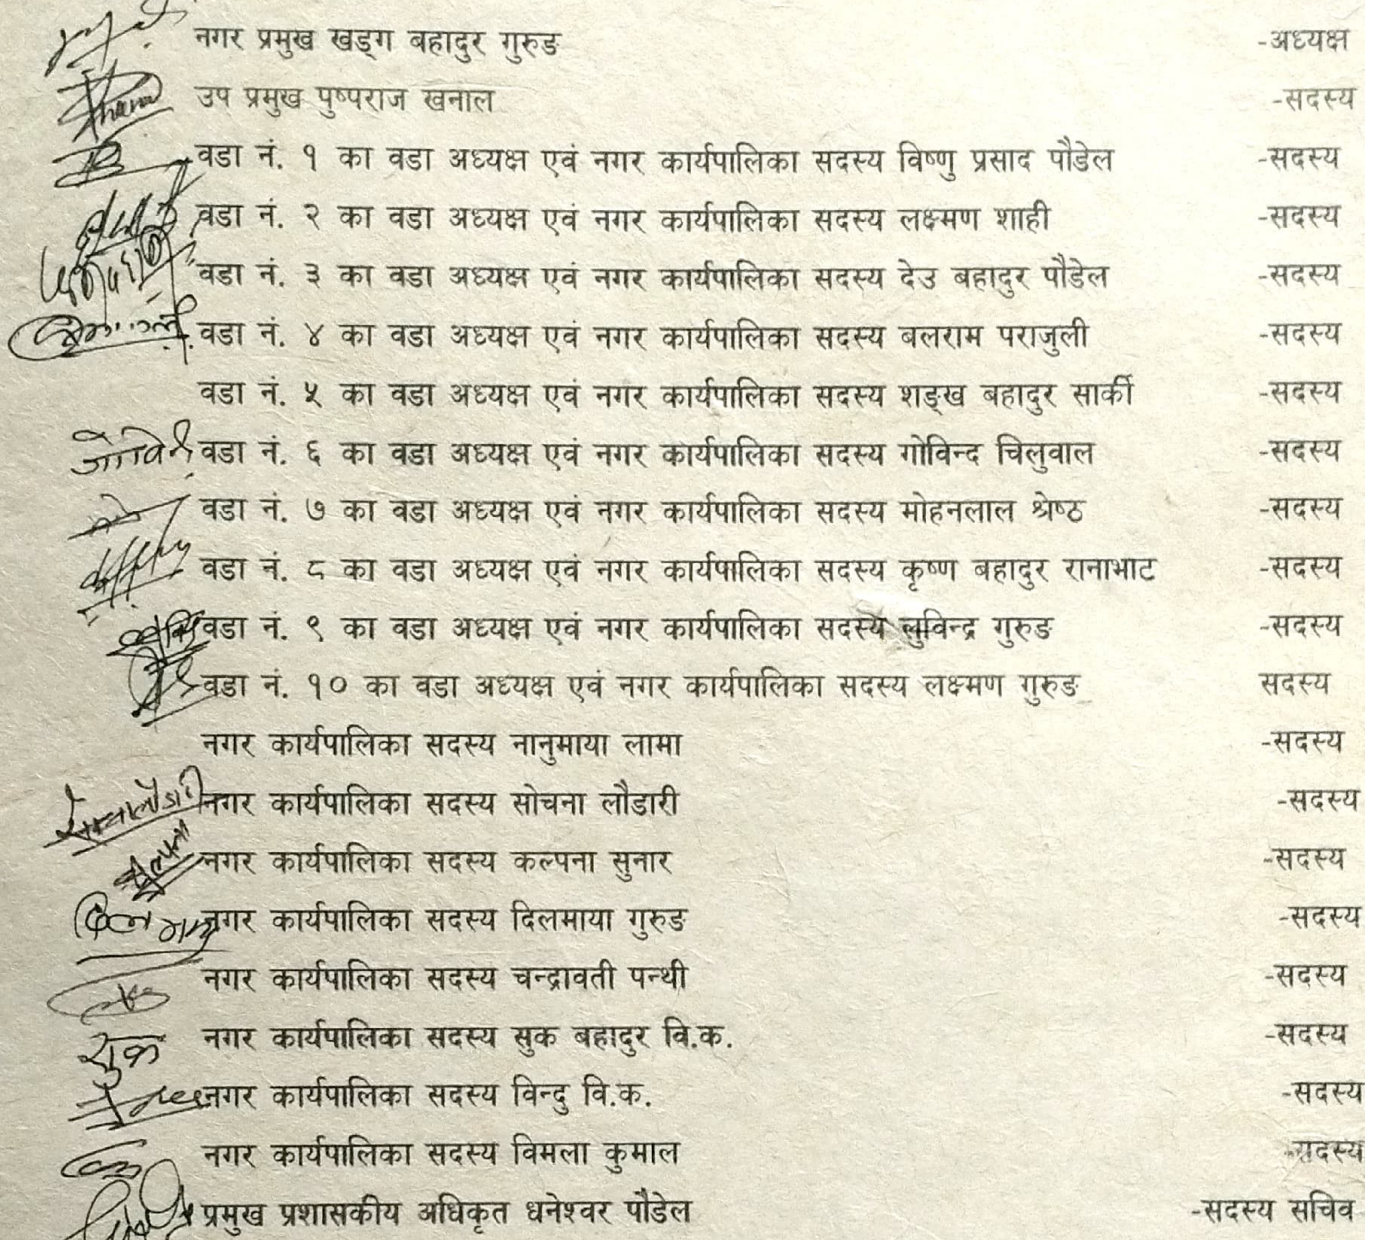 नगर प्रमुख खड्ग बहादुर गुरुङ -अध्यक्ष
उप प्रमुख पुष्पराज खनाल -सदस्य
वडा नं. १ का वडा अध्यक्ष एवं नगर कार्यपालिका सदस्य विष्णु प्रसाद पौडेल -सदस्य
वडा नं. २ का वडा अध्यक्ष एवं नगर कार्यपालिका सदस्य लक्ष्मण शाही -सदस्य
वडा नं. ३ का वडा अध्यक्ष एवं नगर कार्यपालिका सदस्य देउ बहादुर पौडेल -सदस्य
वडा नं. ४ का वडा अध्यक्ष एवं नगर कार्यपालिका सदस्य बलराम पराजुली -सदस्य
वडा नं. ५ का वडा अध्यक्ष एवं नगर कार्यपालिका सदस्य शङ्ख बहादुर सार्की -सदस्य
वडा नं. ६ का वडा अध्यक्ष एवं नगर कार्यपालिका सदस्य गोविन्द चिलुवाल -सदस्य
वडा नं. ७ का वडा अध्यक्ष एवं नगर कार्यपालिका सदस्य मोहनलाल श्रेष्ठ -सदस्य
वडा नं. ८ का वडा अध्यक्ष एवं नगर कार्यपालिका सदस्य कृष्ण बहादुर रानाभाट -सदस्य
वडा नं. ९ का वडा अध्यक्ष एवं नगर कार्यपालिका सदस्य लुविन्द्र गुरुङ -सदस्य
वडा नं. १० का वडा अध्यक्ष एवं नगर कार्यपालिका सदस्य लक्ष्मण गुरुङ सदस्य
नगर कार्यपालिका सदस्य नानुमाया लामा -सदस्य
नगर कार्यपालिका सदस्य सोचना लौडारी -सदस्य
कल्पना नगर कार्यपालिका सदस्य कल्पना सुनार -सदस्य
नगर कार्यपालिका सदस्य दिलमाया गुरुङ -सदस्य
नगर कार्यपालिका सदस्य चन्द्रावती पन्थी -सदस्य
सुक नगर कार्यपालिका सदस्य सुक बहादुर वि.क. -सदस्य
नगर कार्यपालिका सदस्य विन्दु वि.क. -सदस्य
नगर कार्यपालिका सदस्य विमला कुमाल -सदस्य
प्रमुख प्रशासकीय अधिकृत धनेश्वर पौडेल -सदस्य सचिव